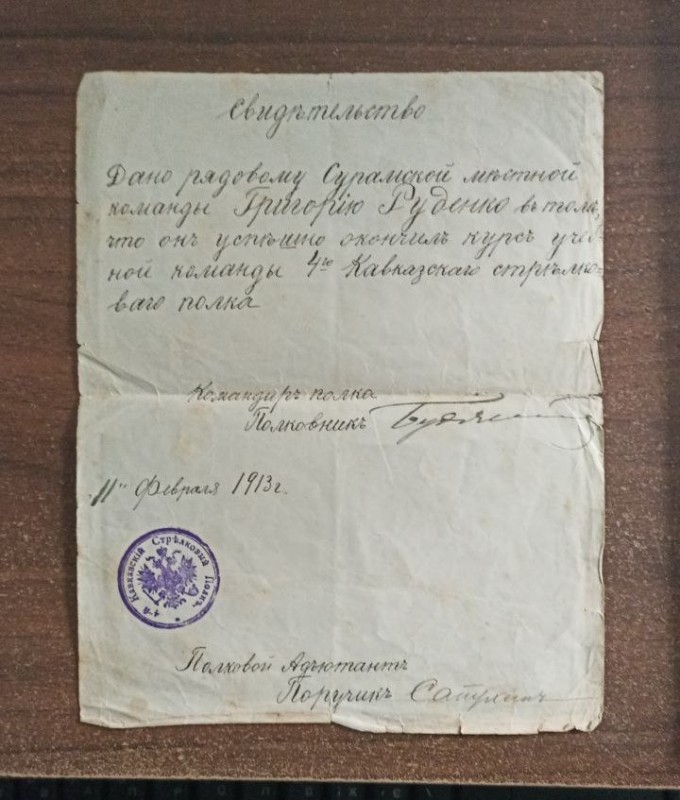 Свидѣтельство
Дано рядовому Сурамской мѣстной
команды Григорію Руденко въ томъ,
что онъ успѣшно окончилъ курсъ учеб-
ной команды 4го Кавказскаго стрѣлко-
ваго полка
Командиръ полка
Полковникъ
11" Февраля 1913 г.
4-й Кавказскій Стрѣлковый Полкъ.
Полковой Адъютантъ
Поручикъ